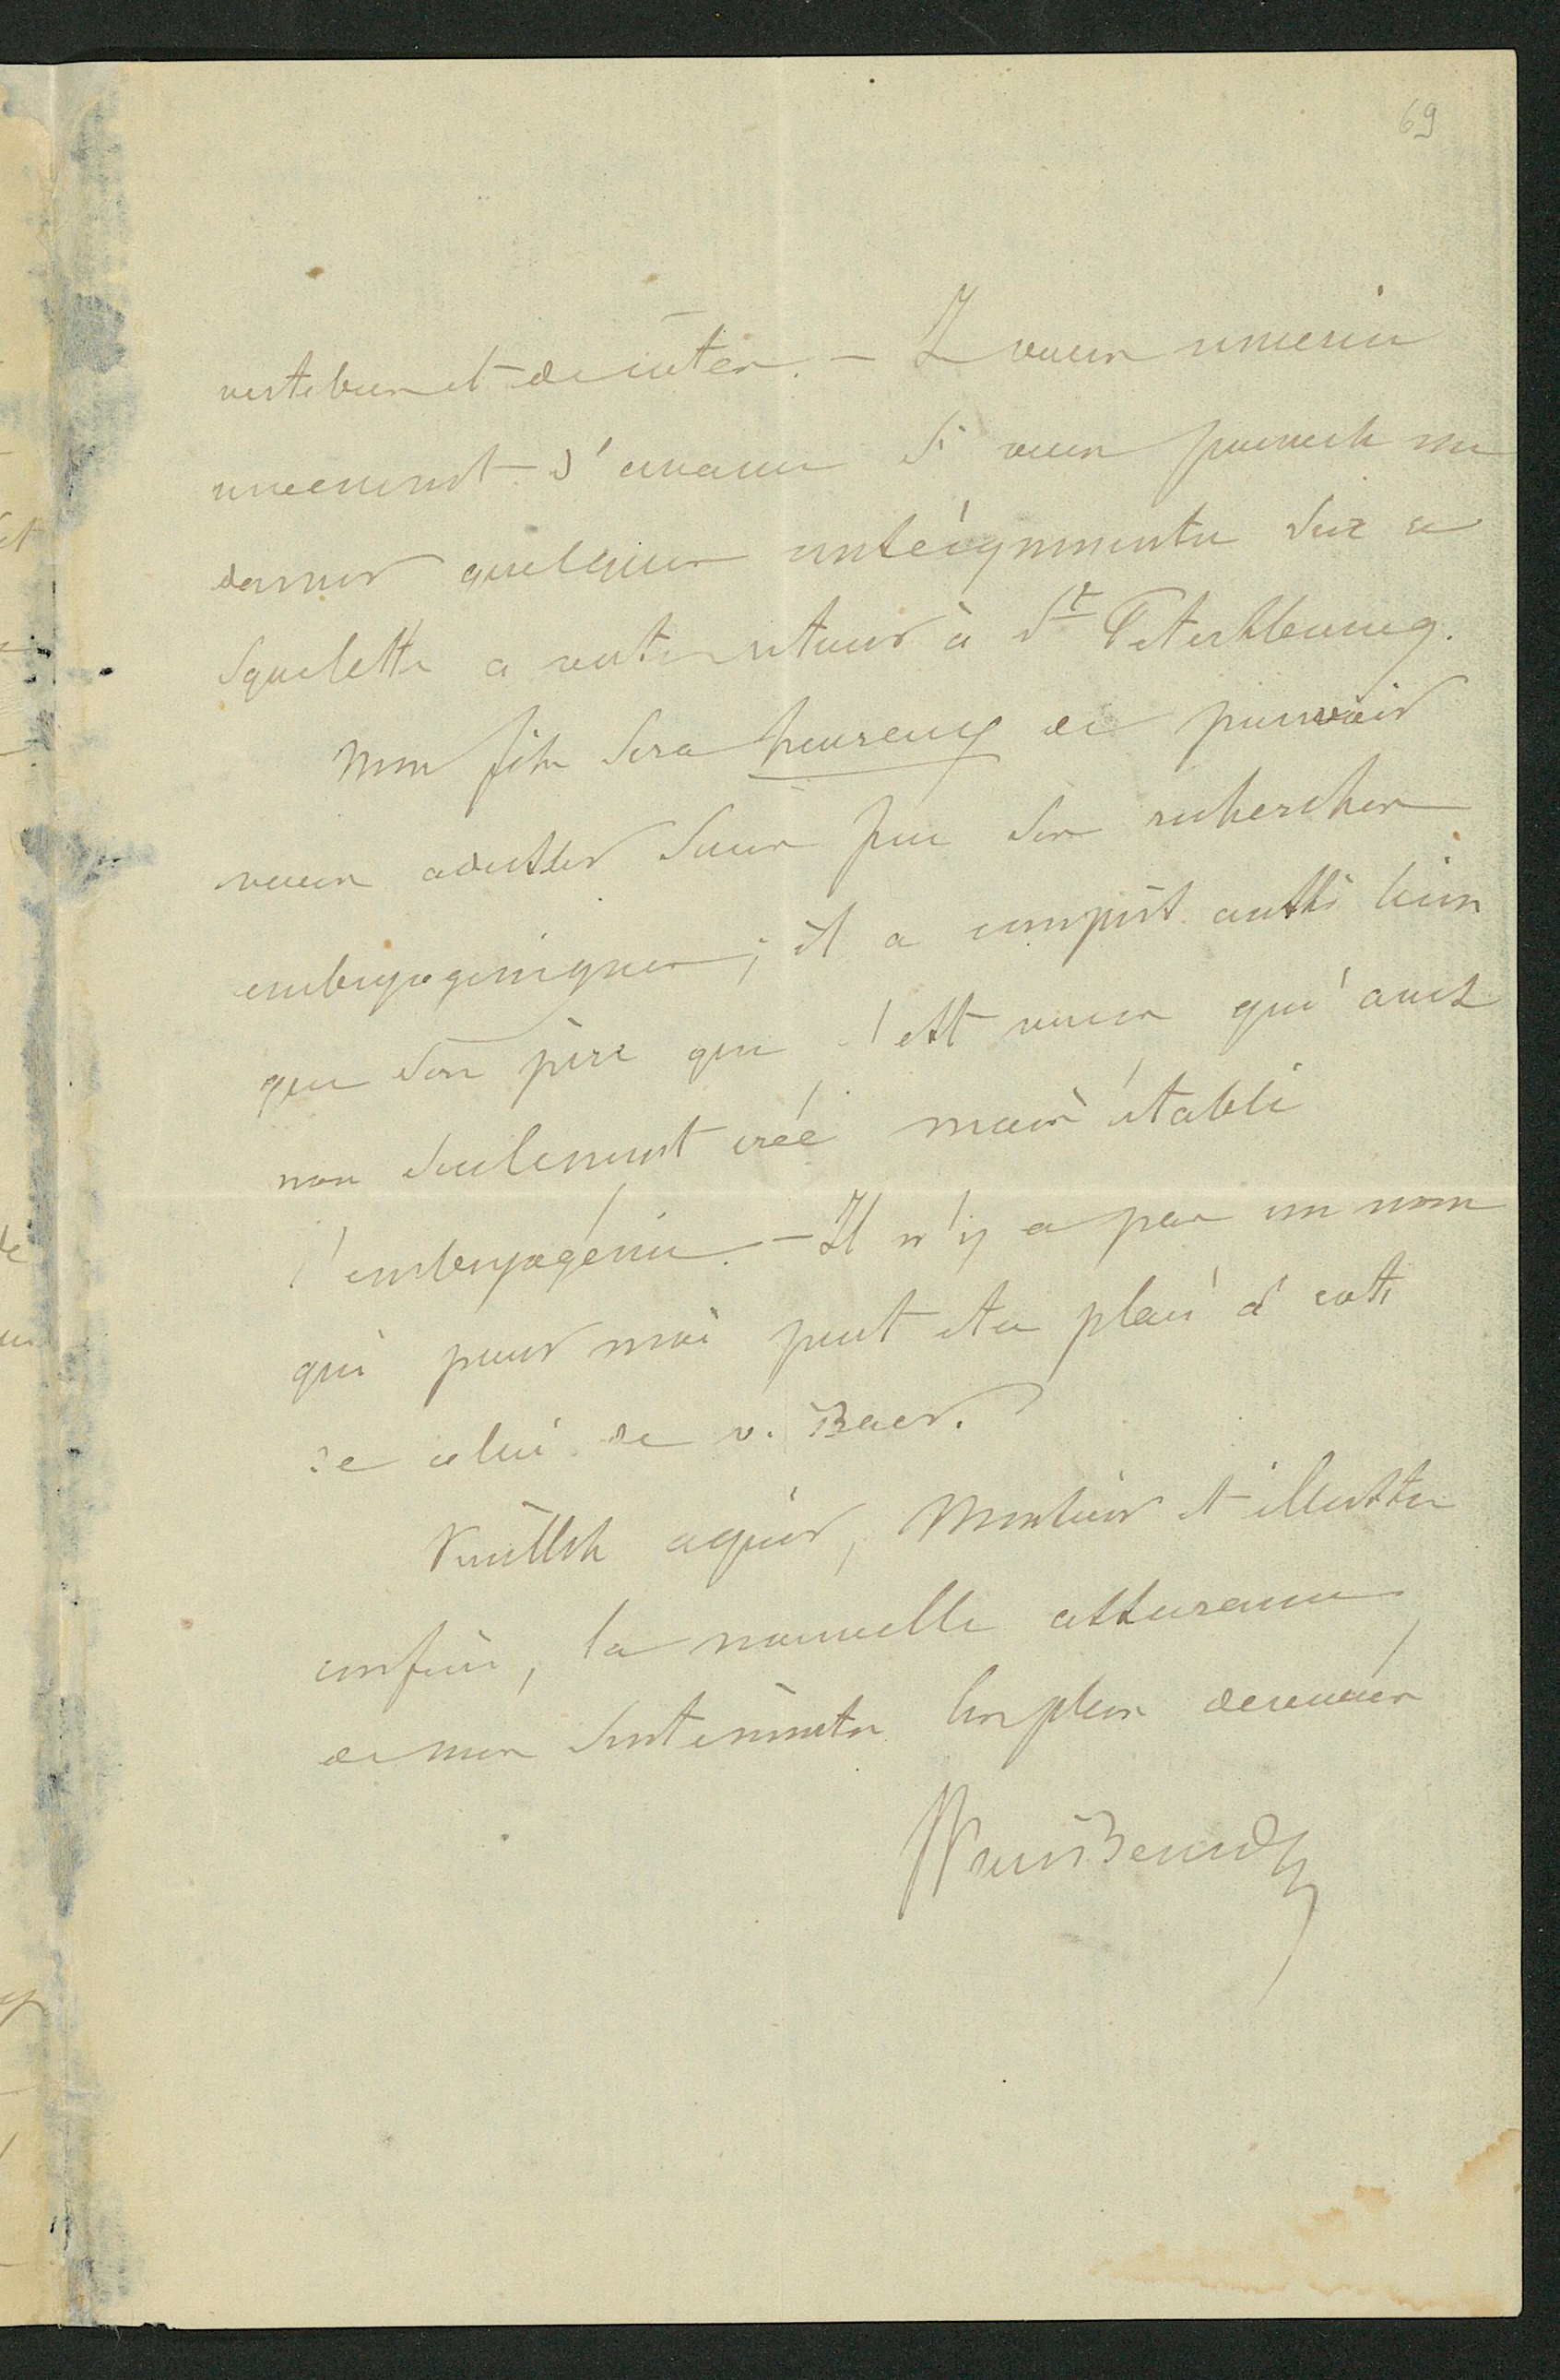 69
vertebres et de côtes. — Je vous remercie
vivement d'avance si vous pouvez me
donner quelques renseignements sur ce
squelette a votre retour à St Petersbourg.
Mon fils sera heureux de pouvoir
vous adresser sous peu ses recherches
embryogeniques; il a compris aussi bien
que son père que c'est vous qui avez
non seulement créé mais établi
l'embryogénie. — Il n'y a pas un nom
qui pour moi peut etre placé à coté
de celui de v. Baer.
Veuillez agréer, Monsieur et illustre
confrère, la nouvelle assurance
de mes sentiments les plus devoués
VanBeneden